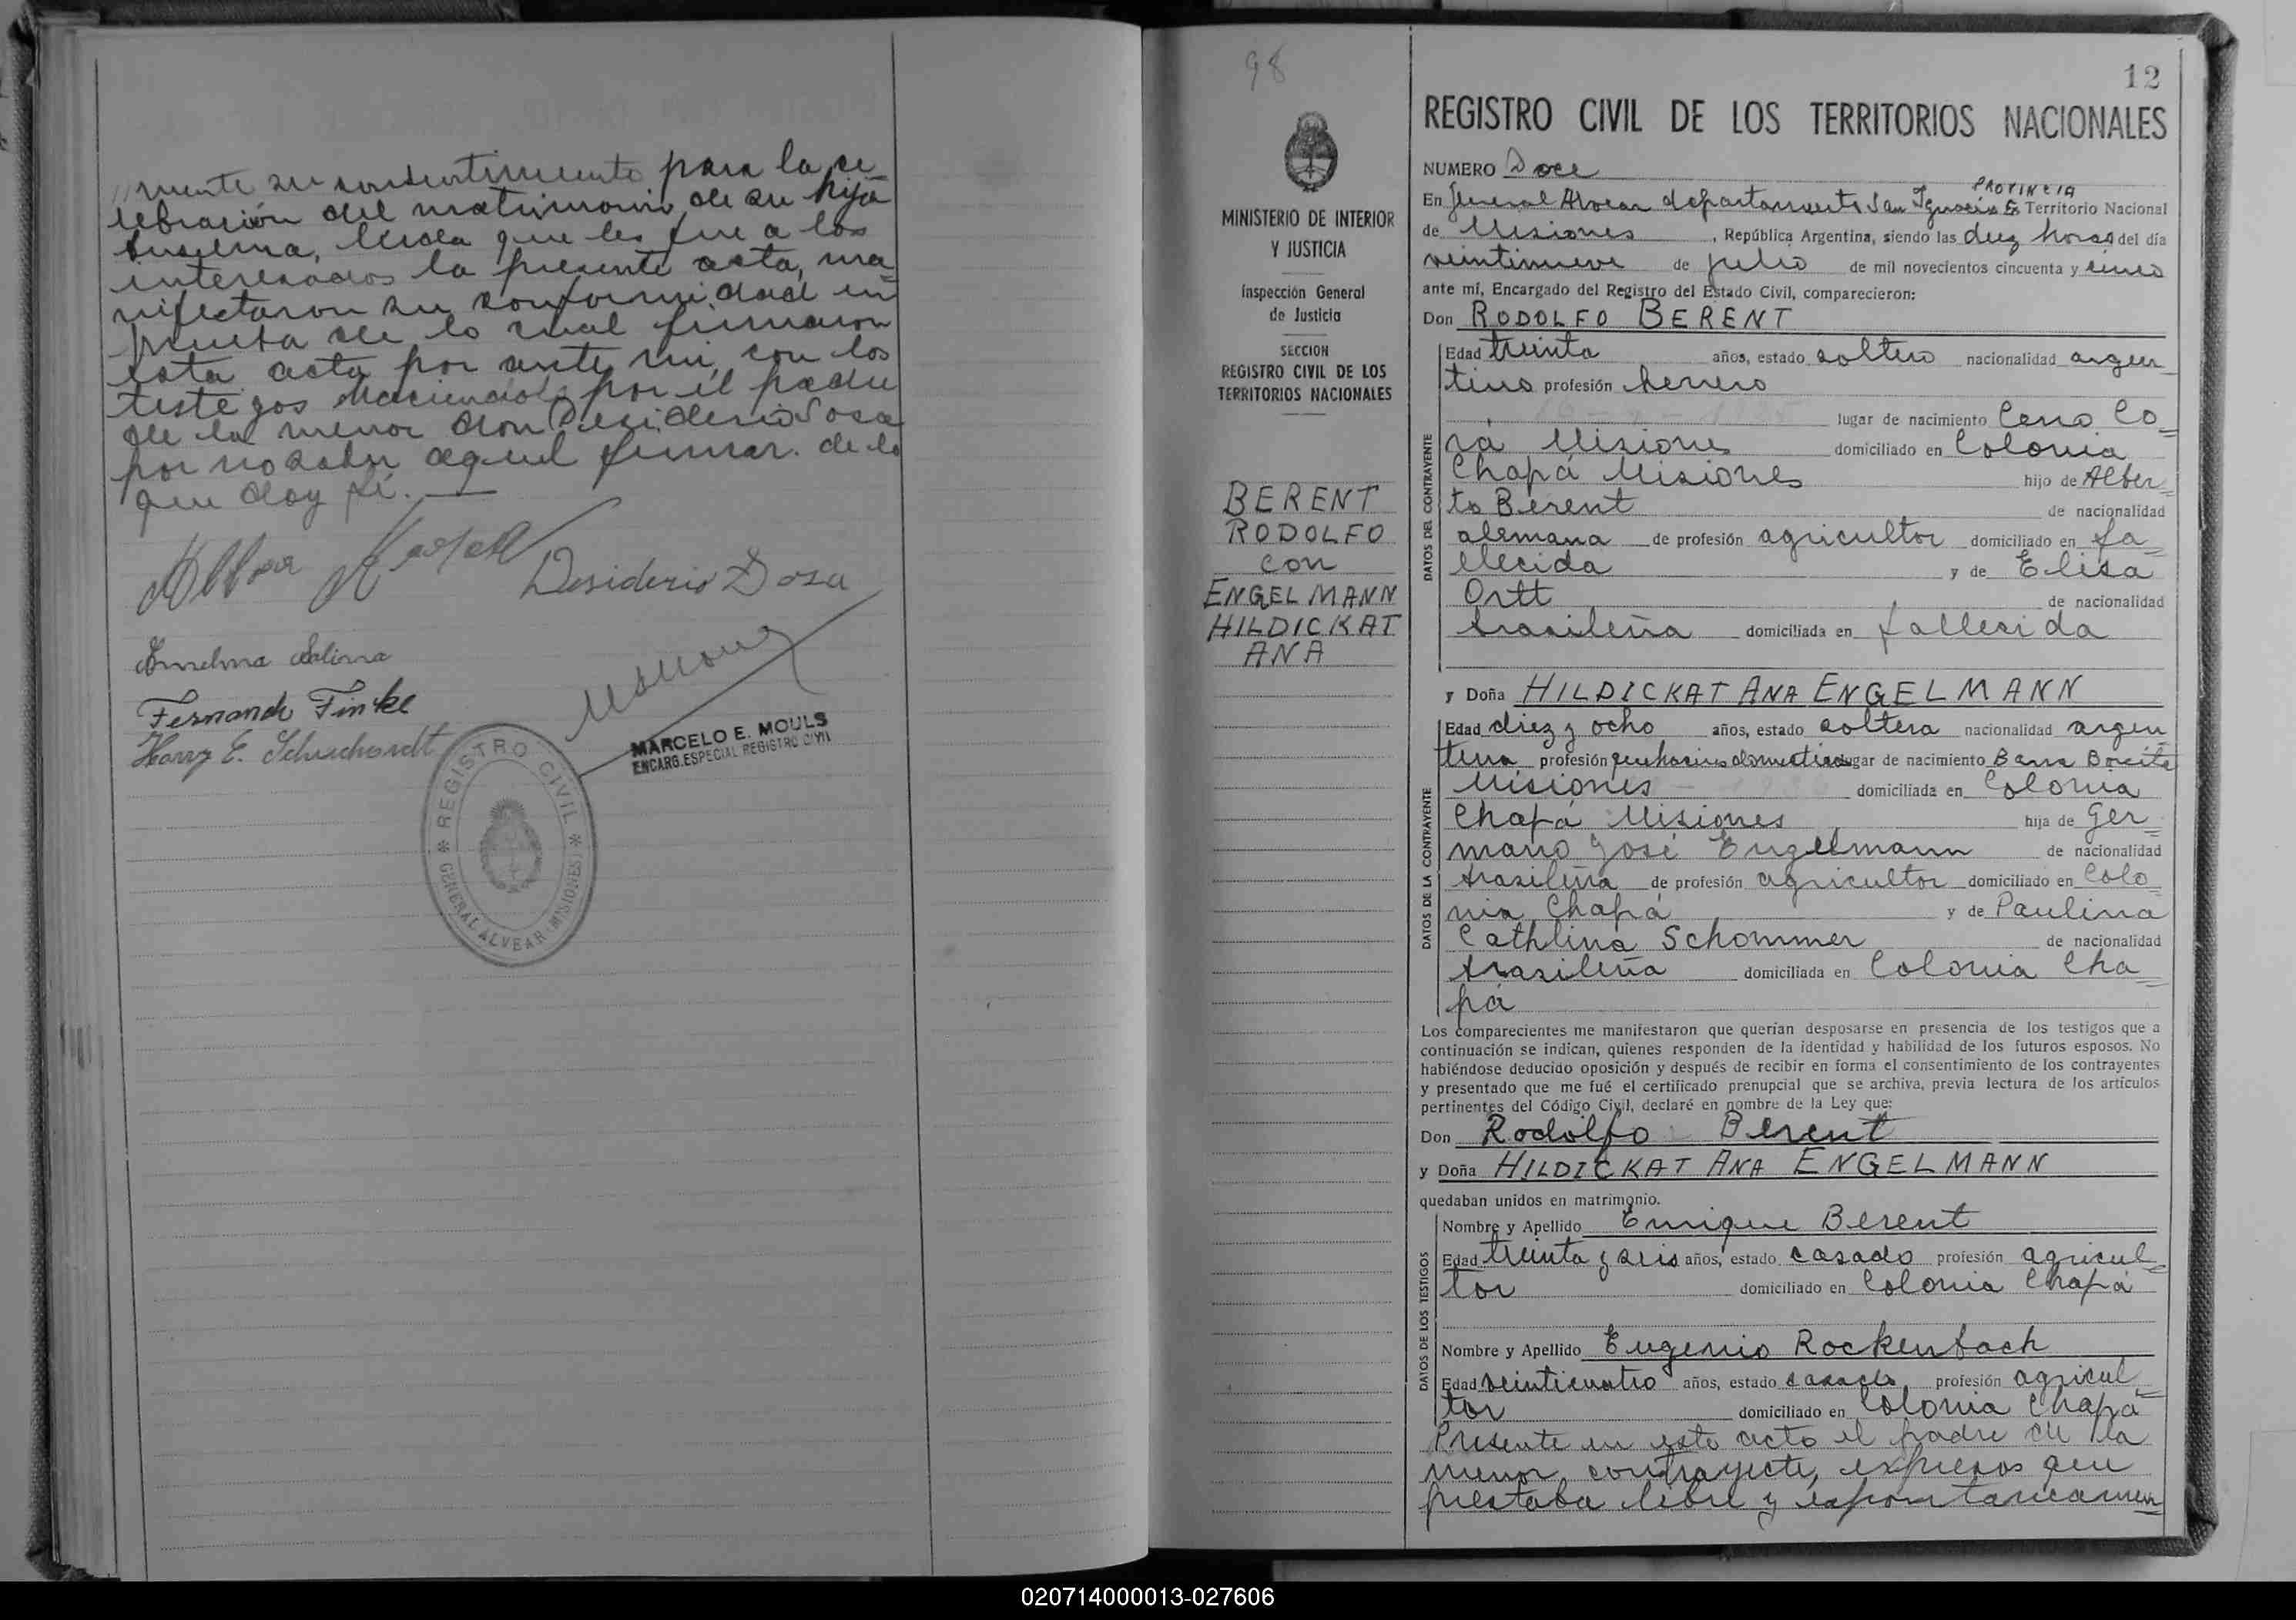 mente su consentimiento para la ce=
lebración del matrimonio de su hija
Anselma, leida que les fue a los
interesados la presente acta, ma=
nifestaron su conformidad en
prueba de lo cual firmaron
esta acta por ante mi, con los
testigos haciendolo por el padre
de la menor don Desiderio Sosa
por no saber aquel firmar. de lo
que doy fé.
Desiderio Sosa
Anselma Salina
Fernando Finke
Harry E. Schuchardt
MARCELO E. MOULS
ENCARG. ESPECIAL REGISTRO CIVIL
REGISTRO CIVIL
GENERAL ALVEAR (MISIONES)
98
MINISTERIO DE INTERIOR
Y JUSTICIA
Inspección General
de Justicia
SECCION
REGISTRO CIVIL DE LOS
TERRITORIOS NACIONALES
BERENT
RODOLFO
con
ENGELMANN
HILDICKAT
ANA
12
REGISTRO CIVIL DE LOS TERRITORIOS NACIONALES
NUMERO Doce
PROVINCIA
En General Alvear departamento San Ignacio Ex Territorio Nacional
de Misiones, República Argentina, siendo las diez horas del día
veintinueve de julio de mil novecientos cincuenta y cinco
ante mí, Encargado del Registro del Estado Civil, comparecieron:
Don RODOLFO BERENT
Edad treinta años, estado soltero nacionalidad argen=
tino profesión herrero
lugar de nacimiento Cerro Co=
rá Misiones domiciliado en Colonia
Chapá Misiones hijo de Alber=
to Berent de nacionalidad
alemana de profesión agricultor domiciliado en fa=
llecida y de Elisa
Ortt de nacionalidad
brasileña domiciliada en fallecida
DATOS DEL CONTRAYENTE
y Doña HILDICKAT ANA ENGELMANN
Edad diez y ocho años, estado soltera nacionalidad argen=
tina profesión quehaceres domesticos lugar de nacimiento Barra Bonita
Misiones domiciliada en Colonia
Chapá Misiones hija de Ger=
mano José Engelmann de nacionalidad
brasileña de profesión agricultor domiciliado en Colo=
nia Chapá y de Paulina
Cathlina Schommer de nacionalidad
brasileña domiciliada en Colonia Cha=
pá
DATOS DE LA CONTRAYENTE
Los comparecientes me manifestaron que querían desposarse en presencia de los testigos que a
continuación se indican, quienes responden de la identidad y habilidad de los futuros esposos. No
habiéndose deducido oposición y después de recibir en forma el consentimiento de los contrayentes
y presentado que me fué el certificado prenupcial que se archiva, previa lectura de los artículos
pertinentes del Código Civil, declaré en nombre de la Ley que:
Don Rodolfo Berent
y Doña HILDICKAT ANA ENGELMANN
quedaban unidos en matrimonio.
Nombre y Apellido Enrique Berent
Edad treinta y seis años, estado casado profesión agricul=
tor domiciliado en Colonia Chapá
Nombre y Apellido Eugenio Rockenbach
Edad veinticuatro años, estado casado profesión agricul=
tor domiciliado en Colonia Chapá
DATOS DE LOS TESTIGOS
Presente en este acto el padre de la
menor contrayente, expreso que
prestaba libre y espontaneamen=
020714000013-027606